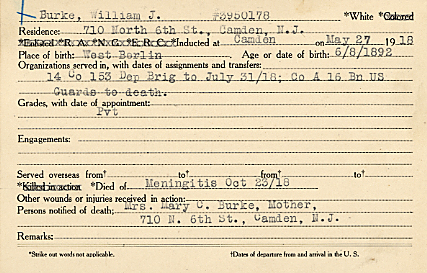 Burke, William J. #3950178 *White *Colored
Residence: 710 North 6th St., Camden, N.J.
*Enlisted *R. A. *N. G. *E. R. C. *Inducted at Camden on May 27 1918
Place of birth: West Berlin Age or date of birth: 6/8/1892
Organizations served in, with dates of assignments and transfers:
14 Co 153 Dep Brig to July 31/18; Co A 16 Bn US
Guards to death.
Grades, with date of appointment:
Pvt
Engagements:
Served overseas from† to† from† to†
*Killed in action *Died of Meningitis Oct 23/18
Other wounds or injuries received in action:
Persons notified of death: Mrs. Mary C. Burke, Mother,
710 N. 6th St., Camden, N.J.
Remarks:
*Strike out words not applicable. †Dates of departure from and arrival in the U. S.